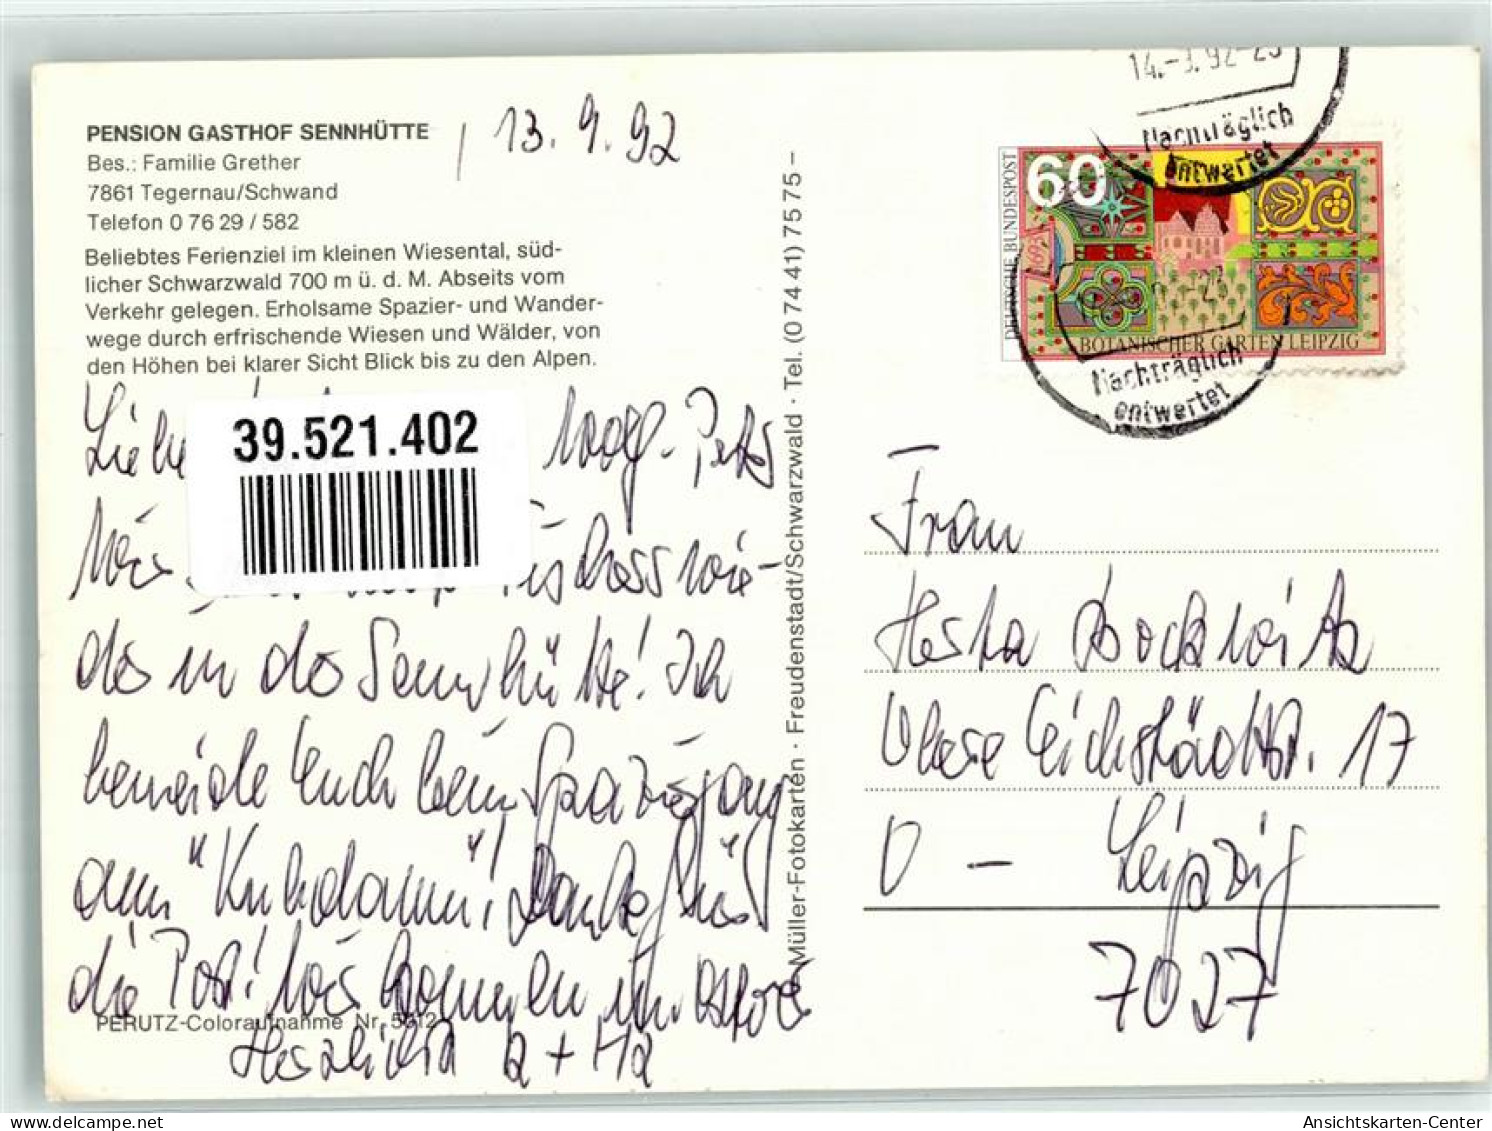 PENSION GASTHOF SENNHÜTTE
Bes.: Familie Grether
7861 Tegernau/Schwand
Telefon 0 76 29 / 582
Beliebtes Ferienziel im kleinen Wiesental, süd-
licher Schwarzwald 700 m ü. d. M. Abseits vom
Verkehr gelegen. Erholsame Spazier- und Wander-
wege durch erfrischende Wiesen und Wälder, von
den Höhen bei klarer Sicht Blick bis zu den Alpen.
13. 9. 92
Liebe
39.521.402
in Sennhütte! Ich
beneide Euch beim Spaziergang
am "Kuhdamm"! Danke für
die Post! Wir kommen im
Herzlichst
PERUTZ-Coloraufnahme Nr. 5612
Müller-Fotokarten · Freudenstadt/Schwarzwald · Tel. (0 74 41) 75 75 –
14.-3. 92-23
Nachträglich
entwertet
60
DEUTSCHE BUNDESPOST
BOTANISCHER GARTEN LEIPZIG
Nachträglich
entwertet
Frau
Herta Bockwitz
Obere Eichstädtstr. 17
D – Leipzig
7027
Ansichtskarten-Center